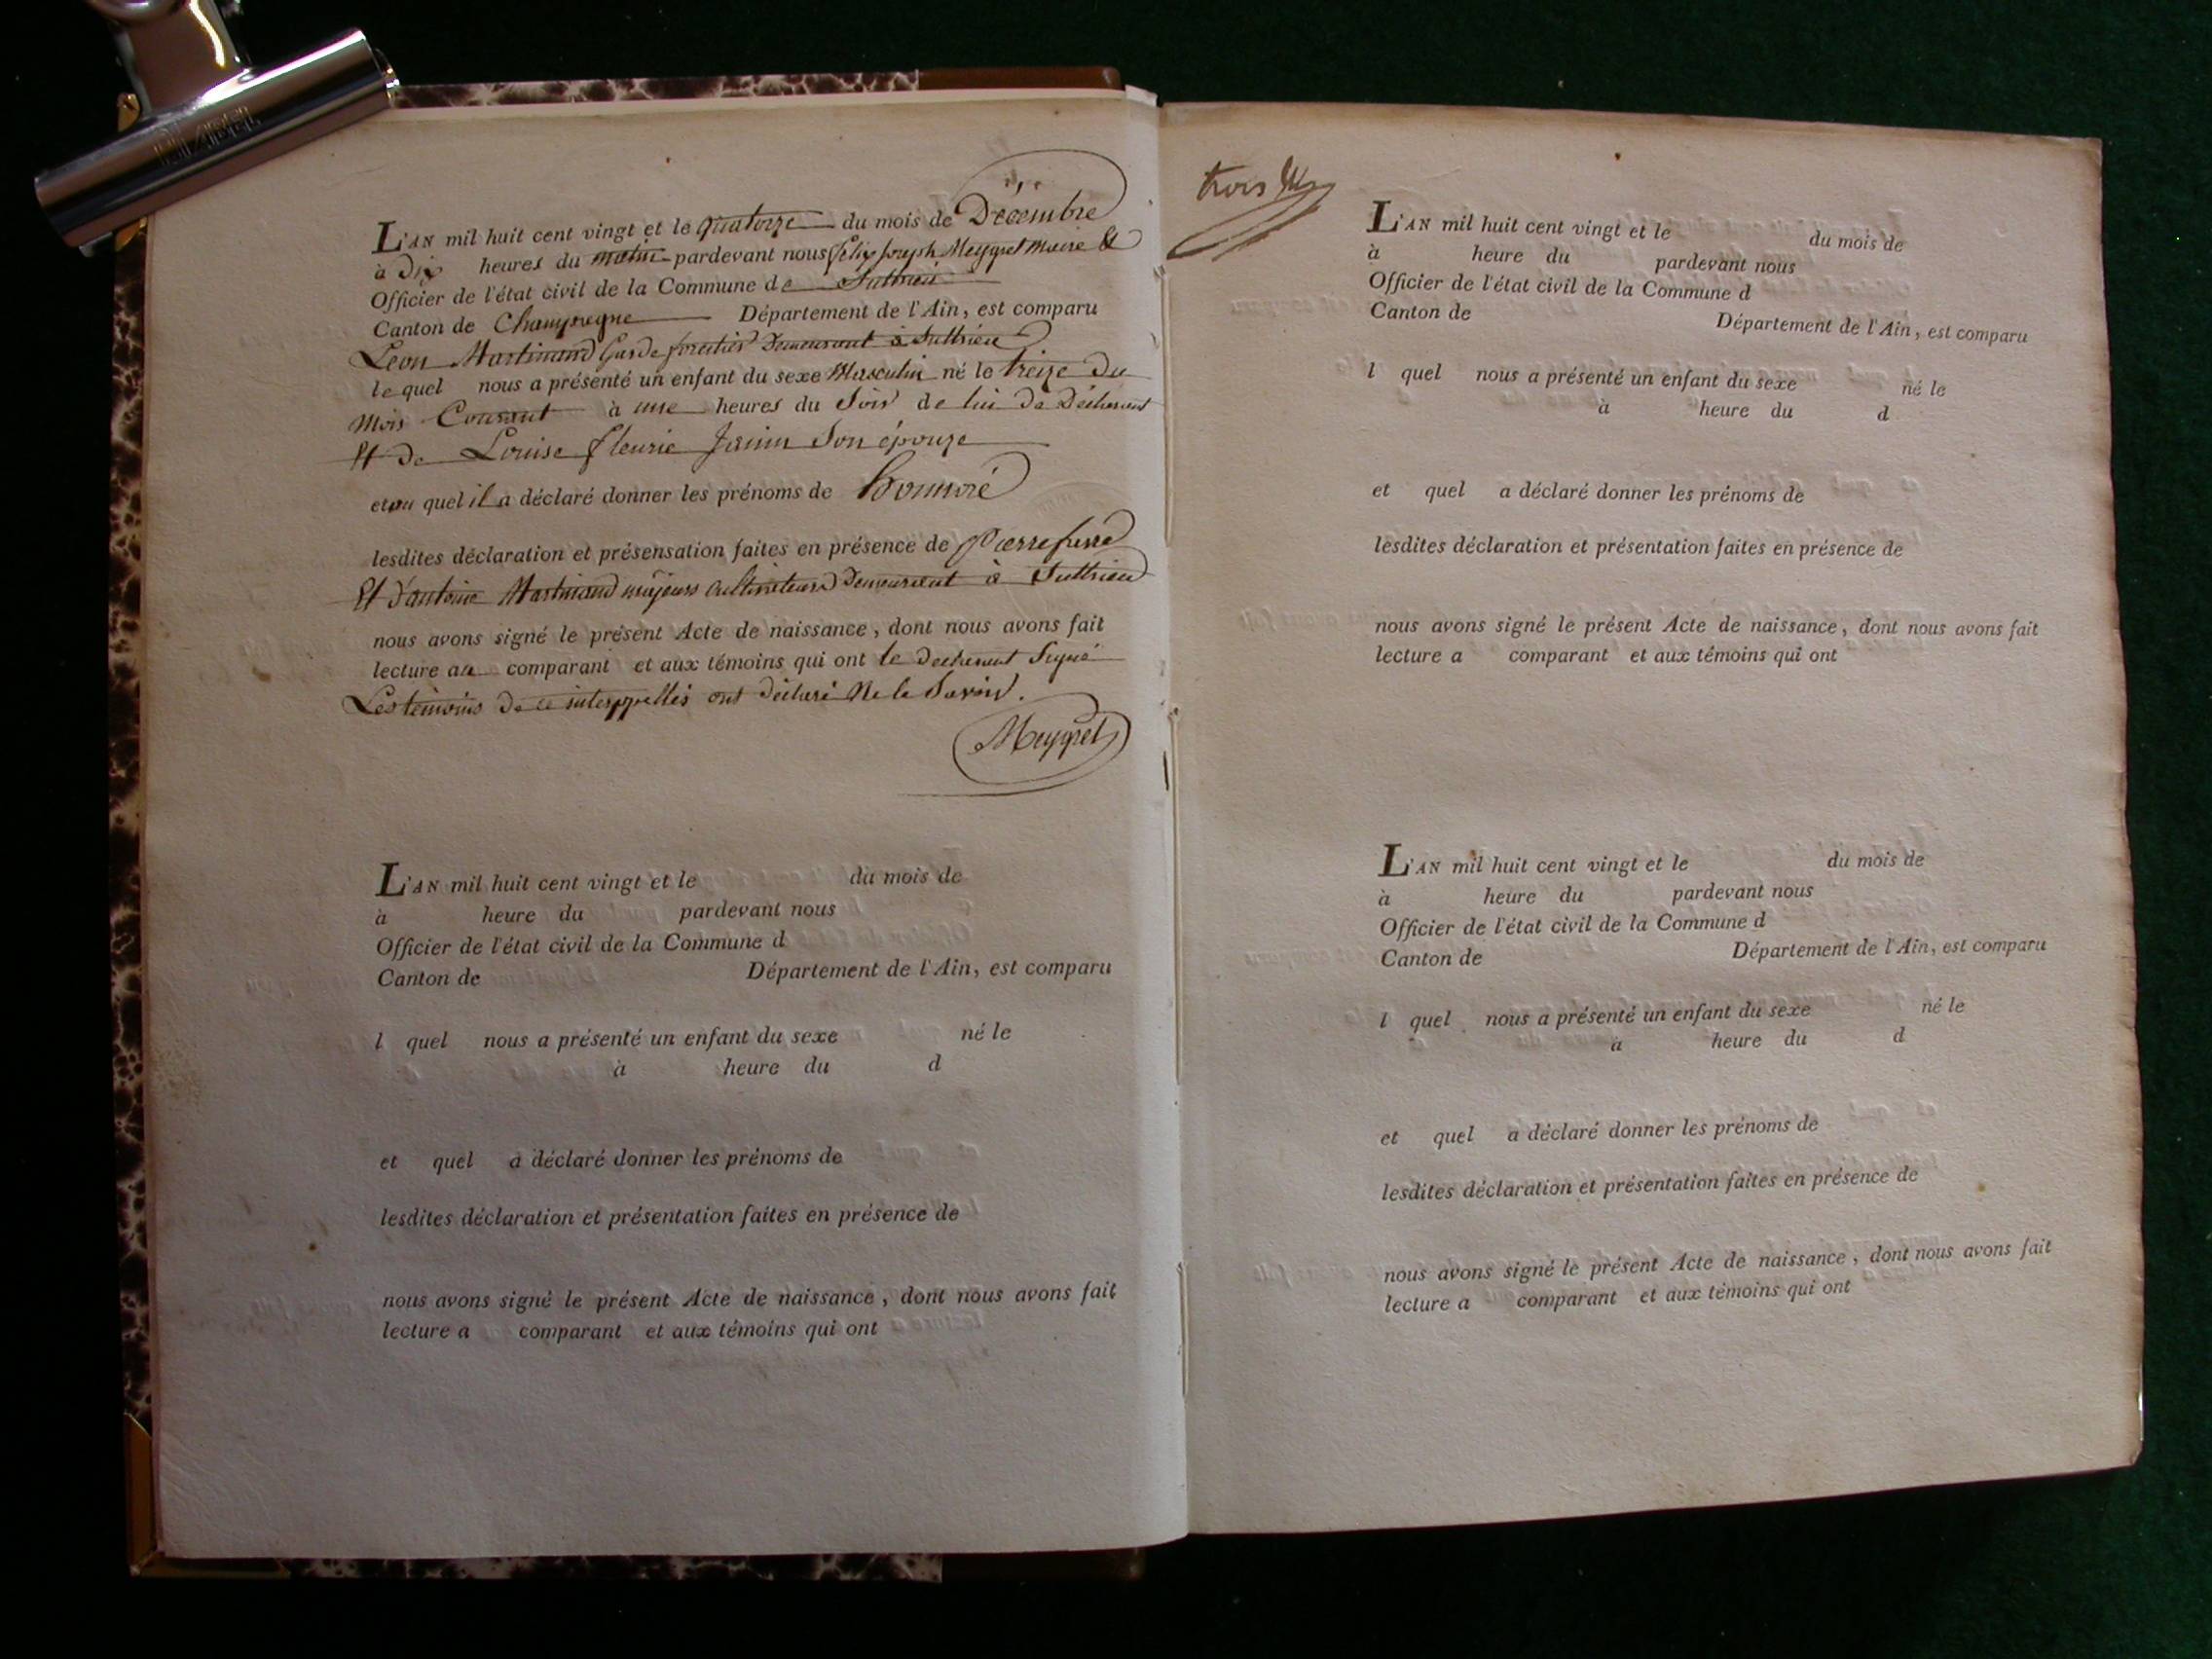 L'AN mil huit cent vingt et le quatorze du mois de Décembre
à dix heures du matin pardevant nous félix joseph Meygret maire &
Officier de l'état civil de la Commune de Suthrieu
Canton de Champagne Département de l'Ain, est comparu
Léon Martinand Garde forestier Demeurant à Suthrieu
le quel nous a présenté un enfant du sexe Masculin né le treize du
Mois Courant à une heures du Soir de lui Dà Déclarant
Et de Louise fleurie Janin Son épouze
et au quel il a déclaré donner les prénoms de honnoré
lesdites déclaration et présensation faites en présence de Pierre
Et d'antoine Martinand majeurs cultivateurs Demeurant à Suthrieu
nous avons signé le présent Acte de naissance, dont nous avons fait
lecture au comparant et aux témoins qui ont le declarant Signé
Les témoins de ce interppellés ont déclaré Ne le Savoir.
Meygret
L'AN mil huit cent vingt et le du mois de
à heure du pardevant nous
Officier de l'état civil de la Commune d
Canton de Département de l'Ain, est comparu
l quel nous a présenté un enfant du sexe né le
à heure du d
et quel a déclaré donner les prénoms de
lesdites déclaration et présentation faites en présence de
nous avons signé le présent Acte de naissance, dont nous avons fait
lecture a comparant et aux témoins qui ont
trois
L'AN mil huit cent vingt et le du mois de
à heure du pardevant nous
Officier de l'état civil de la Commune d
Canton de Département de l'Ain, est comparu
l quel nous a présenté un enfant du sexe né le
à heure du d
et quel a déclaré donner les prénoms de
lesdites déclaration et présentation faites en présence de
nous avons signé le présent Acte de naissance, dont nous avons fait
lecture a comparant et aux témoins qui ont
L'AN mil huit cent vingt et le du mois de
à heure du pardevant nous
Officier de l'état civil de la Commune d
Canton de Département de l'Ain, est comparu
l quel nous a présenté un enfant du sexe né le
à heure du d
et quel a déclaré donner les prénoms de
lesdites déclaration et présentation faites en présence de
nous avons signé le présent Acte de naissance, dont nous avons fait
lecture a comparant et aux témoins qui ont